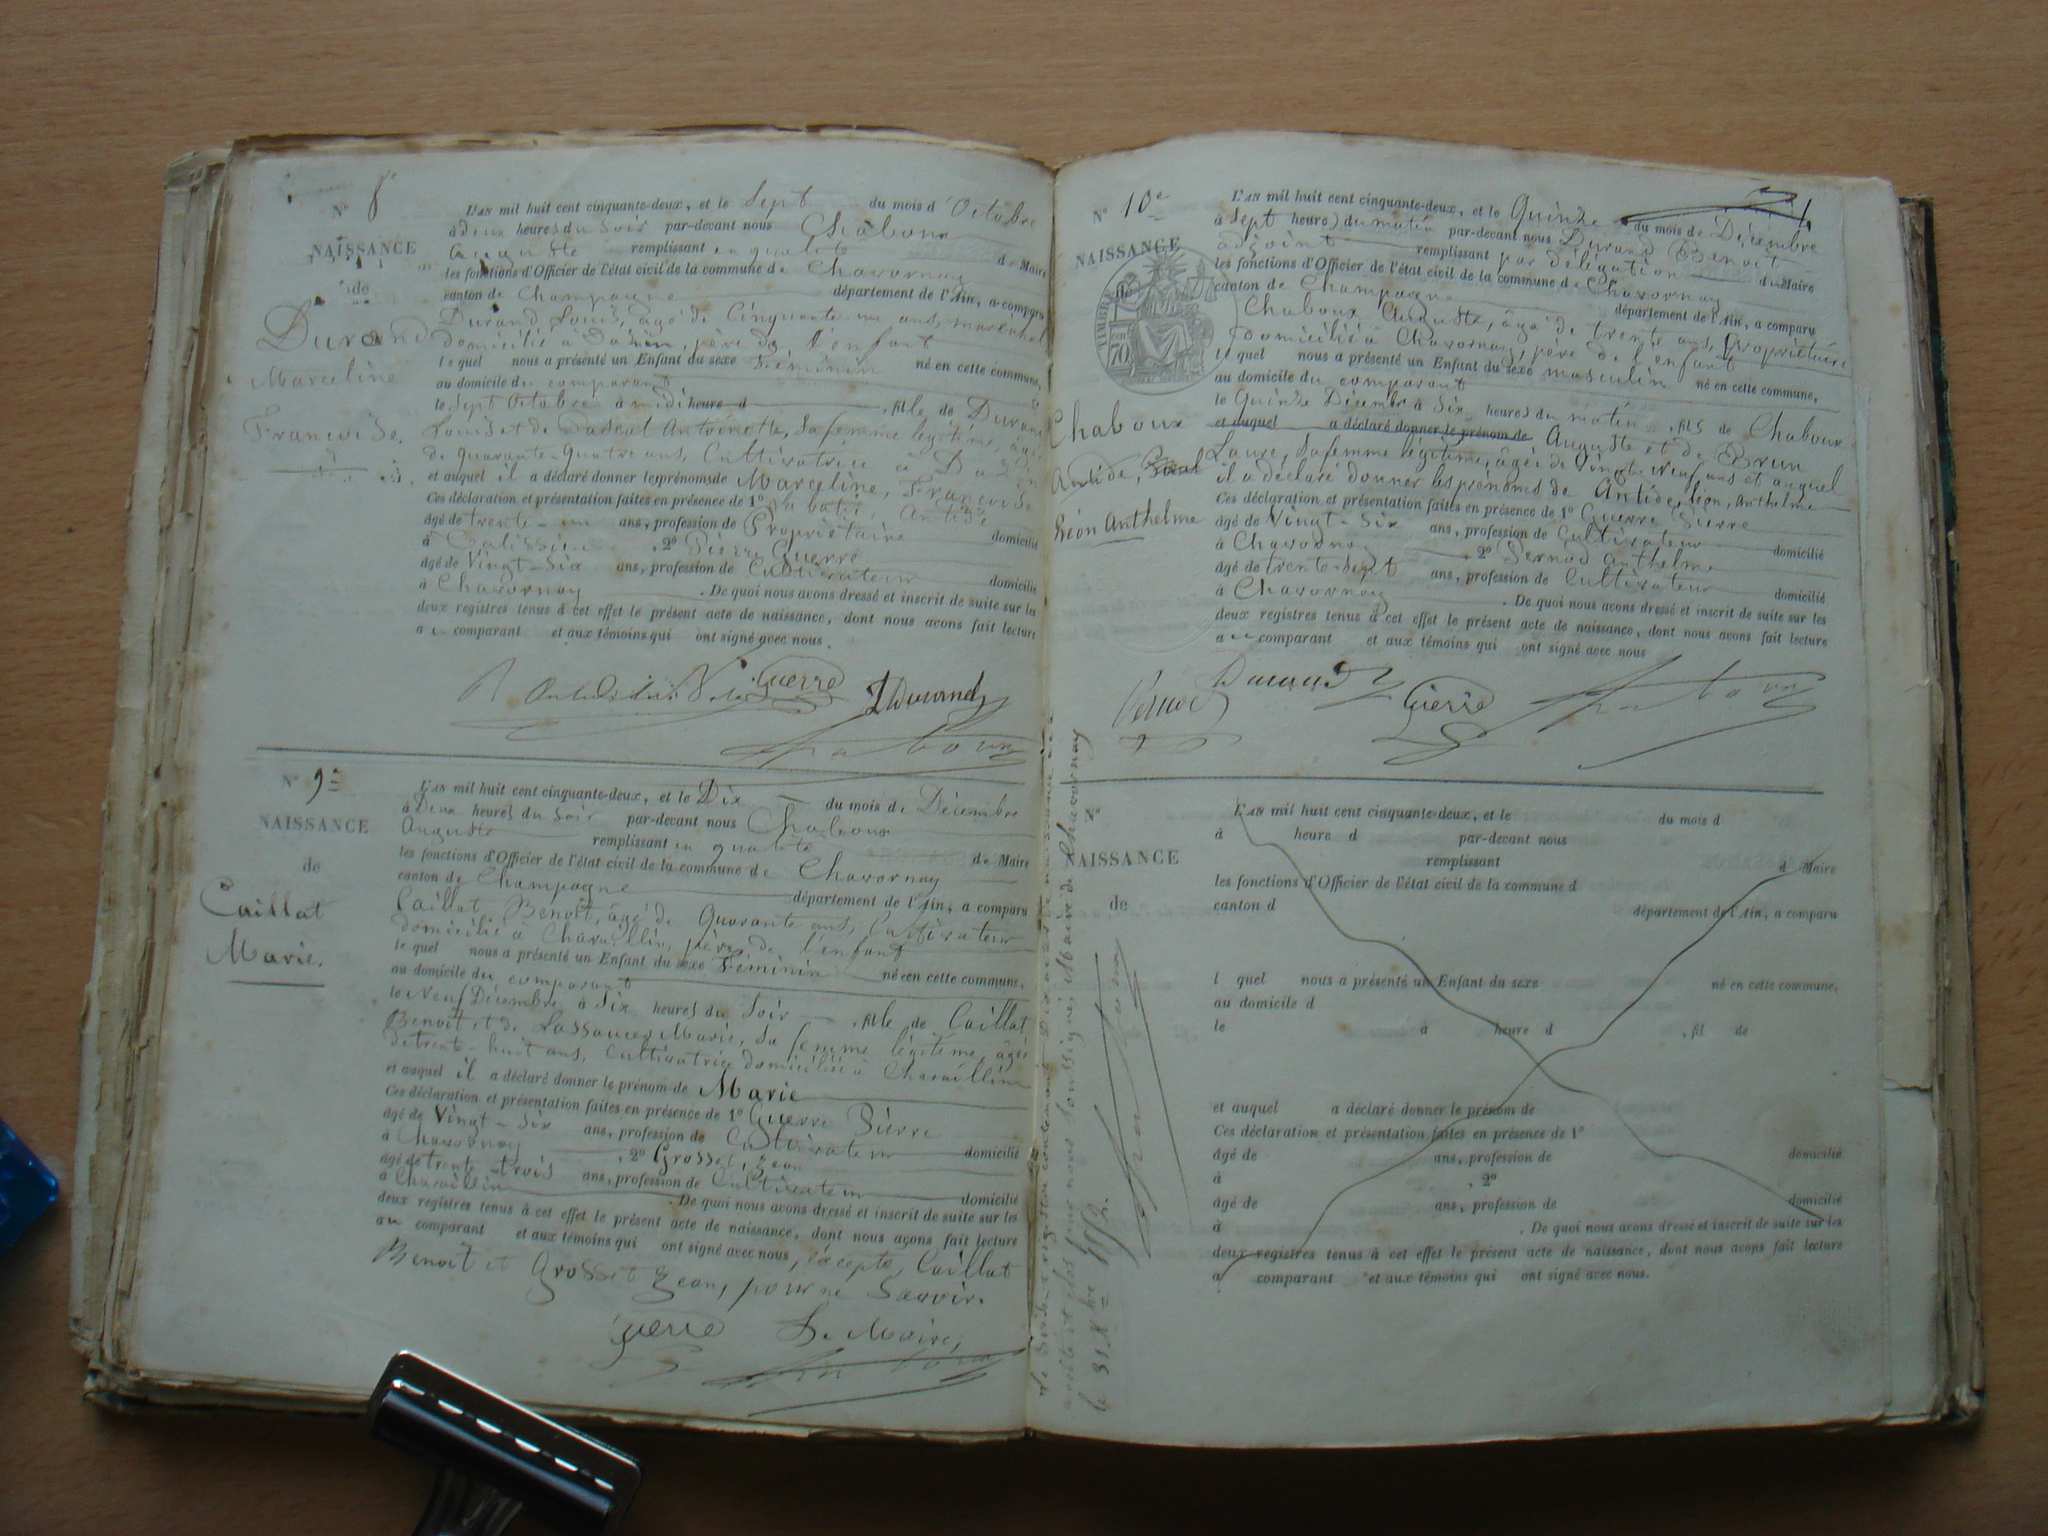 N° 8e
NAISSANCE
de
Durand
Marceline
Françoise.
L'AN mil huit cent cinquante-deux, et le Sept du mois d'Octobre
à deux heures du Soir par-devant nous Chaboux
Auguste remplissant en qualité de Maire
les fonctions d'Officier de l'état civil de la commune de Chavornay
canton de Champagne département de l'Ain, a comparu
Durand Louis, âgé de Cinquante un ans, maréchal
domicilié à père de l'enfant
lequel nous a présenté un Enfant du sexe Féminin né en cette commune,
au domicile du comparant
le Sept Octobre à midi heure d , fille de Durand
Louis et de Pascal Antoinette, Sa femme légitime, âgée
de quarante-quatre ans, Cultivatrice à
et auquel il a déclaré donner les prénoms de Marceline, Françoise
Ces déclaration et présentation faites en présence de 1° Antide
âgé de trente-un ans, profession de Propriétaire domicilié
à , 2° Pierre Guerre
âgé de Vingt-Six ans, profession de Cultivateur domicilié
à Chavornay . De quoi nous avons dressé et inscrit de suite sur les
deux registres tenus à cet effet le présent acte de naissance, dont nous avons fait lecture
au comparant et aux témoins qui ont signé avec nous.
Guerre LDurand
Chaboux
N° 9e
NAISSANCE
de
Caillat
Marie.
L'AN mil huit cent cinquante-deux, et le Dix du mois de Décembre
à Deux heures du Soir par-devant nous Chaboux
Auguste remplissant en qualité de Maire
les fonctions d'Officier de l'état civil de la commune de Chavornay
canton de Champagne département de l'Ain, a comparu
Caillat Benoît, âgé de Quarante ans, Cultivateur
domicilié à Charaillin, père de l'enfant
lequel nous a présenté un Enfant du sexe Féminin né en cette commune,
au domicile du comparant
le Neuf Décembre à Six heures du Soir , fille de Caillat
Benoît et de Lassauce Marie, Sa femme légitime, âgée
de trente-huit ans, Cultivatrice domiciliée à Charaillin
et auquel il a déclaré donner le prénom de Marie
Ces déclaration et présentation faites en présence de 1° Guerre Pierre
âgé de Vingt-Six ans, profession de Cultivateur domicilié
à Chavornay , 2° Grosset, Jean
âgé de trente-trois ans, profession de Cultivateur domicilié
à Charaillin . De quoi nous avons dressé et inscrit de suite sur les
deux registres tenus à cet effet le présent acte de naissance, dont nous avons fait lecture
au comparant et aux témoins qui ont signé avec nous, excepté, Caillat
Benoît et Grosset Jean, pour ne Savoir.
Guerre Le Maire,
Chaboux
4
N° 10e
NAISSANCE
de
TIMBRE
70
Chaboux
Antide,
Léon Anthelme
L'AN mil huit cent cinquante-deux, et le Quinze du mois de Décembre
à Sept heures du matin par-devant nous Durand Benoit
adjoint remplissant par délégation du Maire
les fonctions d'Officier de l'état civil de la commune de Chavornay
canton de Champagne département de l'Ain, a comparu
Chaboux Auguste, âgé de trente ans, Propriétaire
domicilié à Chavornay, père de l'enfant
lequel nous a présenté un Enfant du sexe masculin né en cette commune,
au domicile du comparant
le Quinze Décembre à Six heures du matin , fils de Chaboux
et auquel a déclaré donner le prénom de Auguste et de Brun
Laure, Sa femme légitime, âgée de Vingt-neuf ans et auquel
il a déclaré donner les prénoms de Antide, Léon, Anthelme
Ces déclaration et présentation faites en présence de 1° Guerre Pierre
âgé de Vingt-Six ans, profession de Cultivateur domicilié
à Chavornay , 2° Pernod Anthelme
âgé de trente-Sept ans, profession de Cultivateur domicilié
à Chavornay . De quoi nous avons dressé et inscrit de suite sur les
deux registres tenus à cet effet le présent acte de naissance, dont nous avons fait lecture
au comparant et aux témoins qui ont signé avec nous
Pernod Durand Guerre Chaboux
N°
NAISSANCE
de
L'AN mil huit cent cinquante-deux, et le du mois d
à heure d par-devant nous
remplissant d Maire
les fonctions d'Officier de l'état civil de la commune d
canton d département de l'Ain, a comparu
l quel nous a présenté un Enfant du sexe né en cette commune,
au domicile d
le à heure d , fil de
et auquel a déclaré donner le prénom de
Ces déclaration et présentation faites en présence de 1°
âgé de ans, profession de domicilié
à , 2°
âgé de ans, profession de domicilié
à . De quoi nous avons dressé et inscrit de suite sur les
deux registres tenus à cet effet le présent acte de naissance, dont nous avons fait lecture
a comparant et aux témoins qui ont signé avec nous.
Le registre contenant Dix actes de naissance a été
arrêté et clos par nous Soussigné Maire de Chavornay
le 31 Xbre 1852.
Chaboux